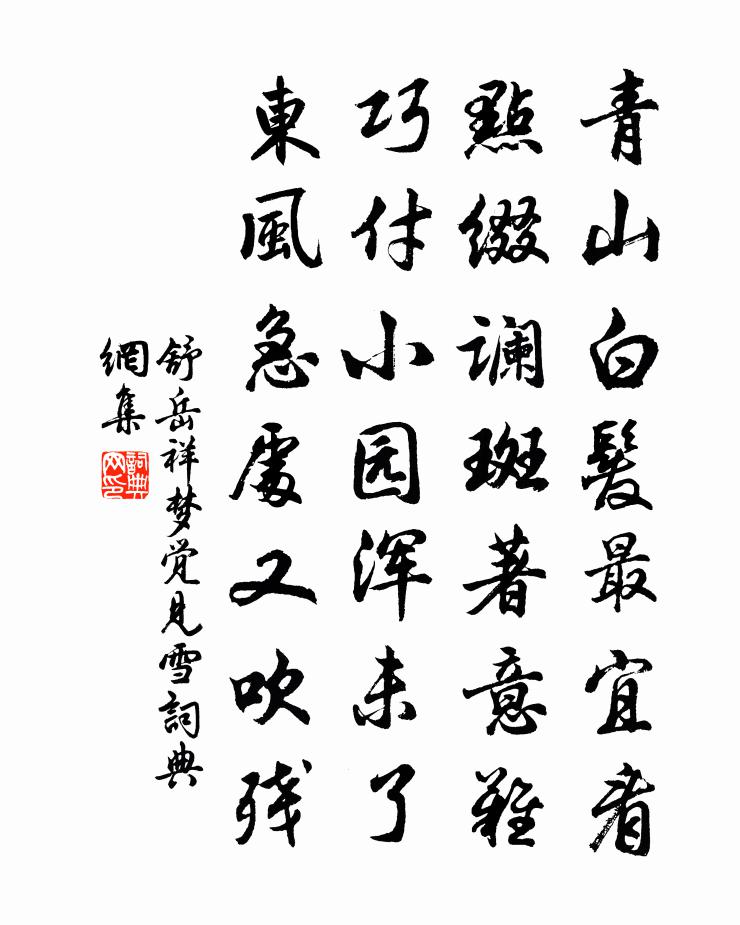 青山白髮最宜看
點綴谰斑著意難
巧付小园浑未了
東風急處又吹残
舒岳祥梦觉见雪詞典
網集
詞典网印